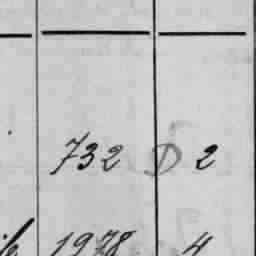 732 D 2
1978 4